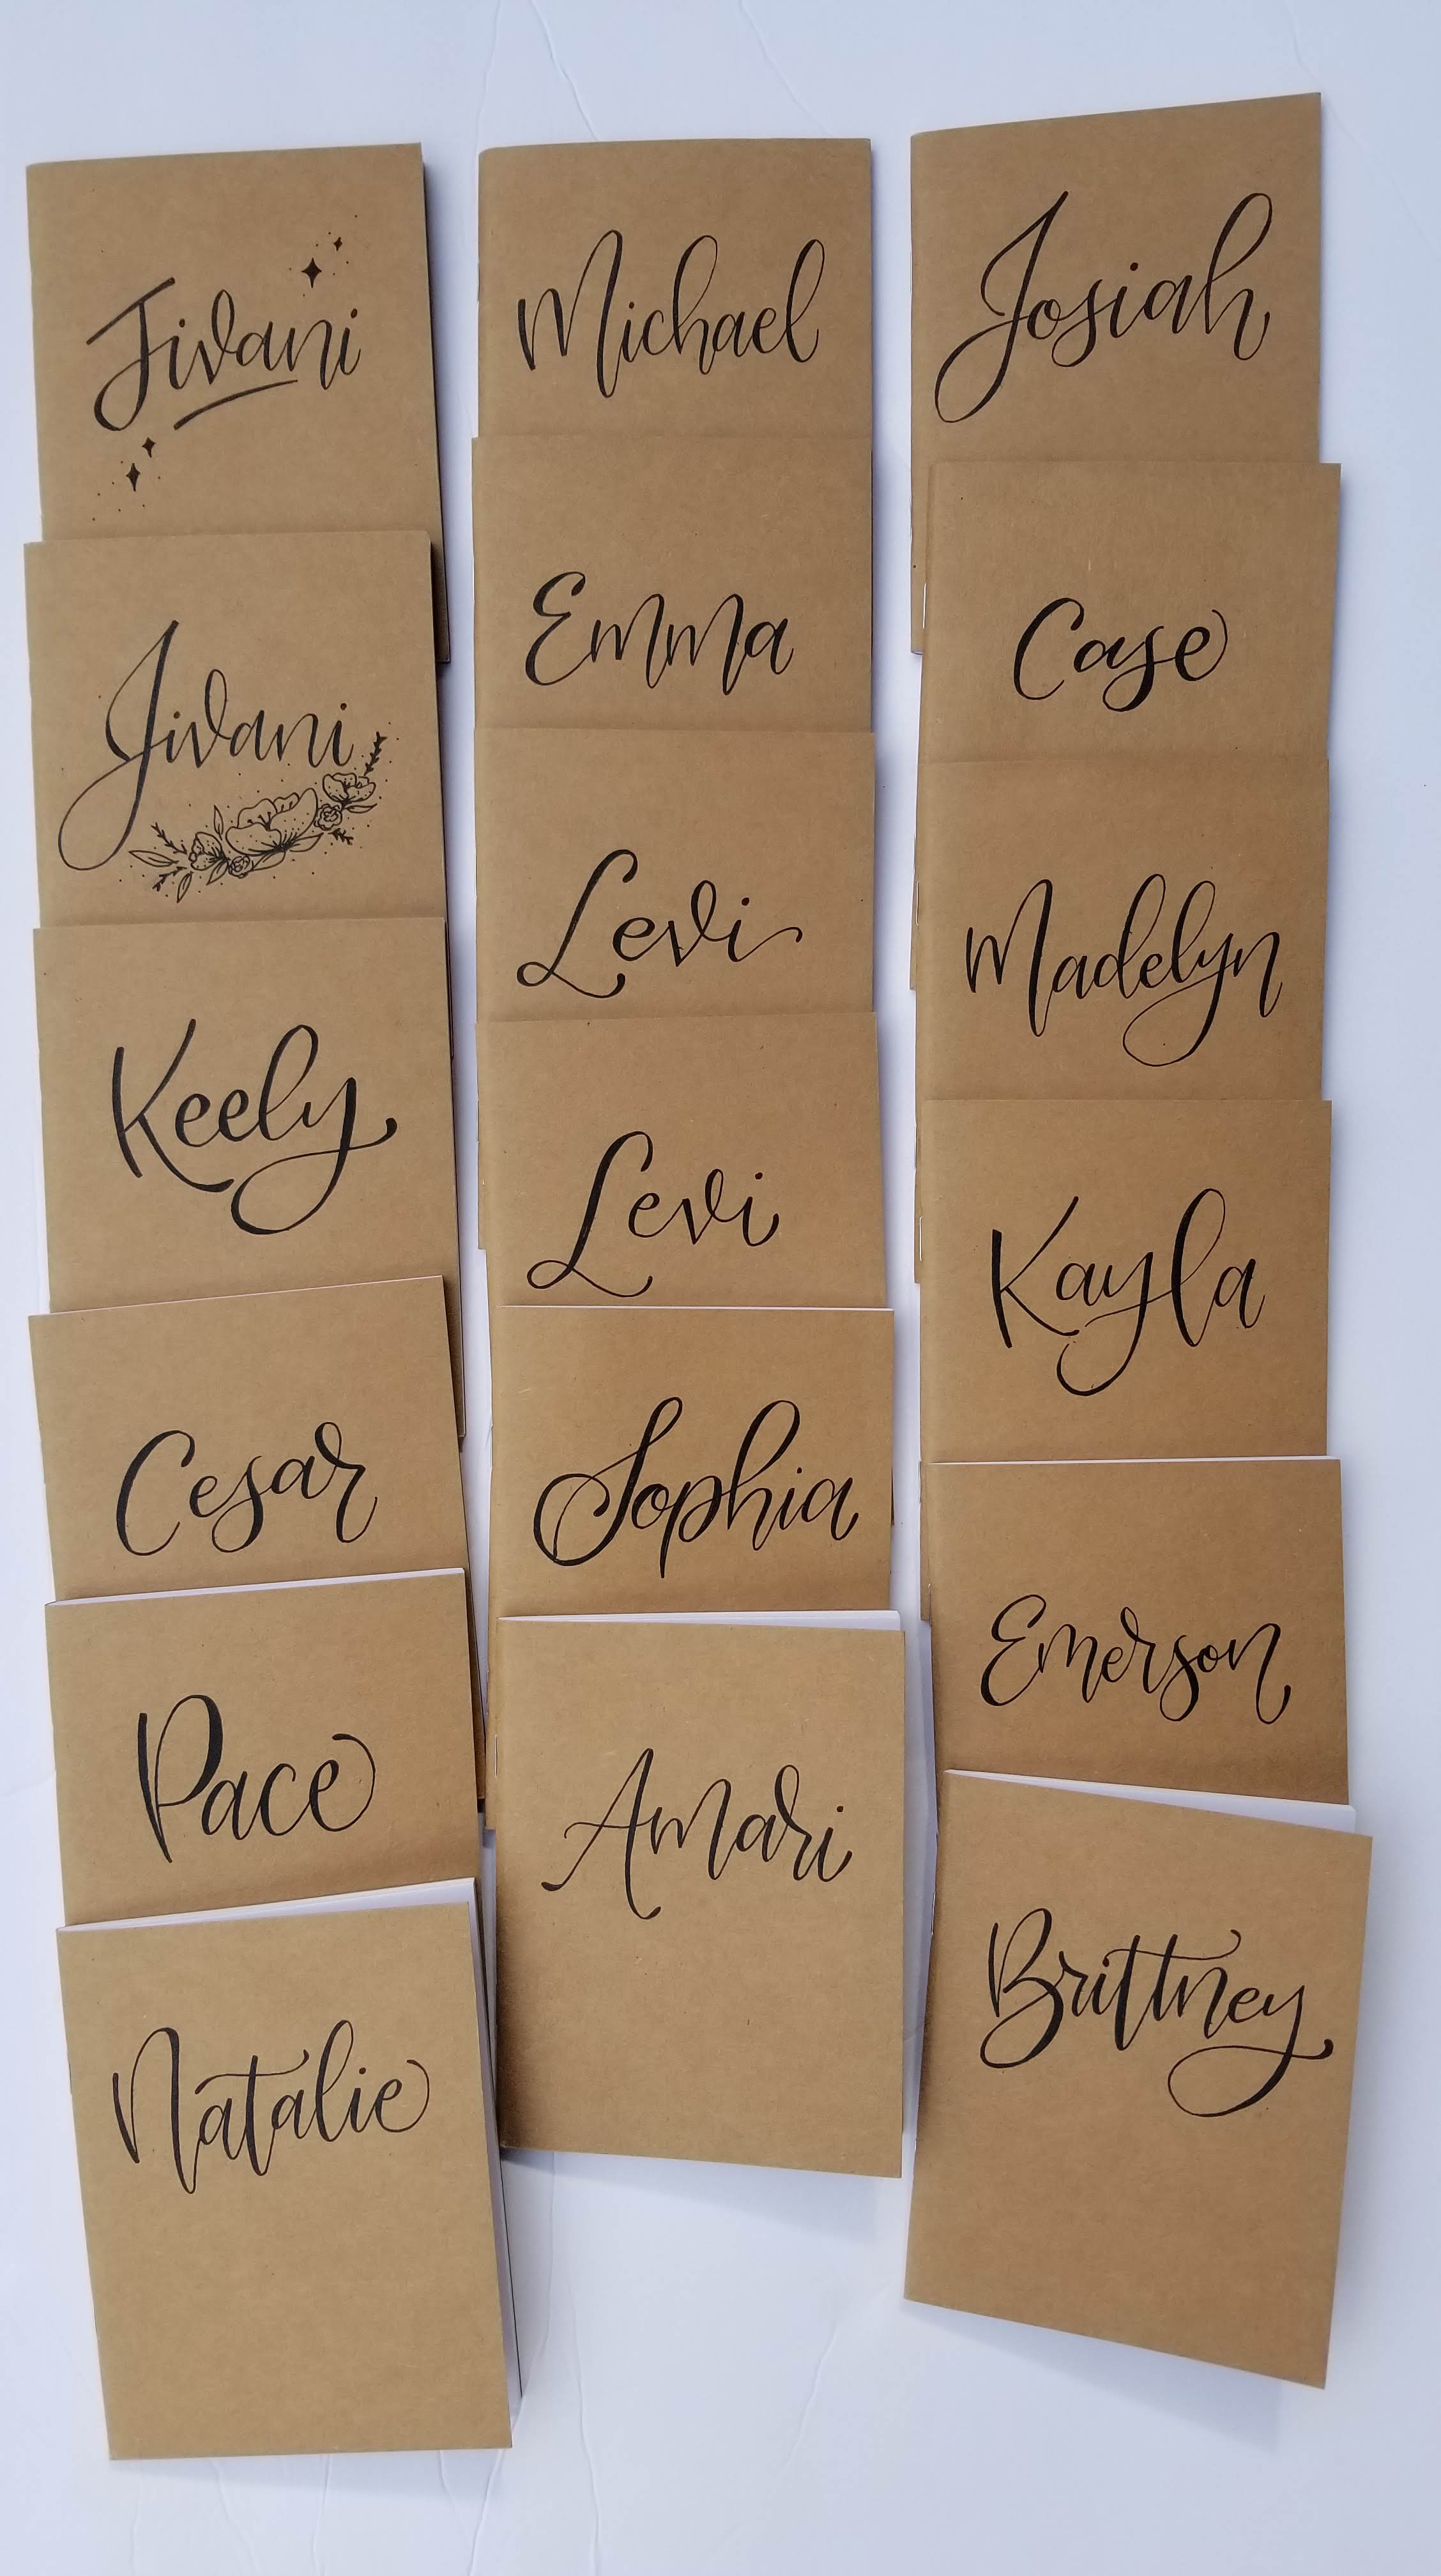 Jivani
Jivani
Keely
Cesar
Pace
Natalie
Michael
Emma
Levi
Levi
Sophia
Amari
Josiah
Case
Madelyn
Kayla
Emerson
Brittney